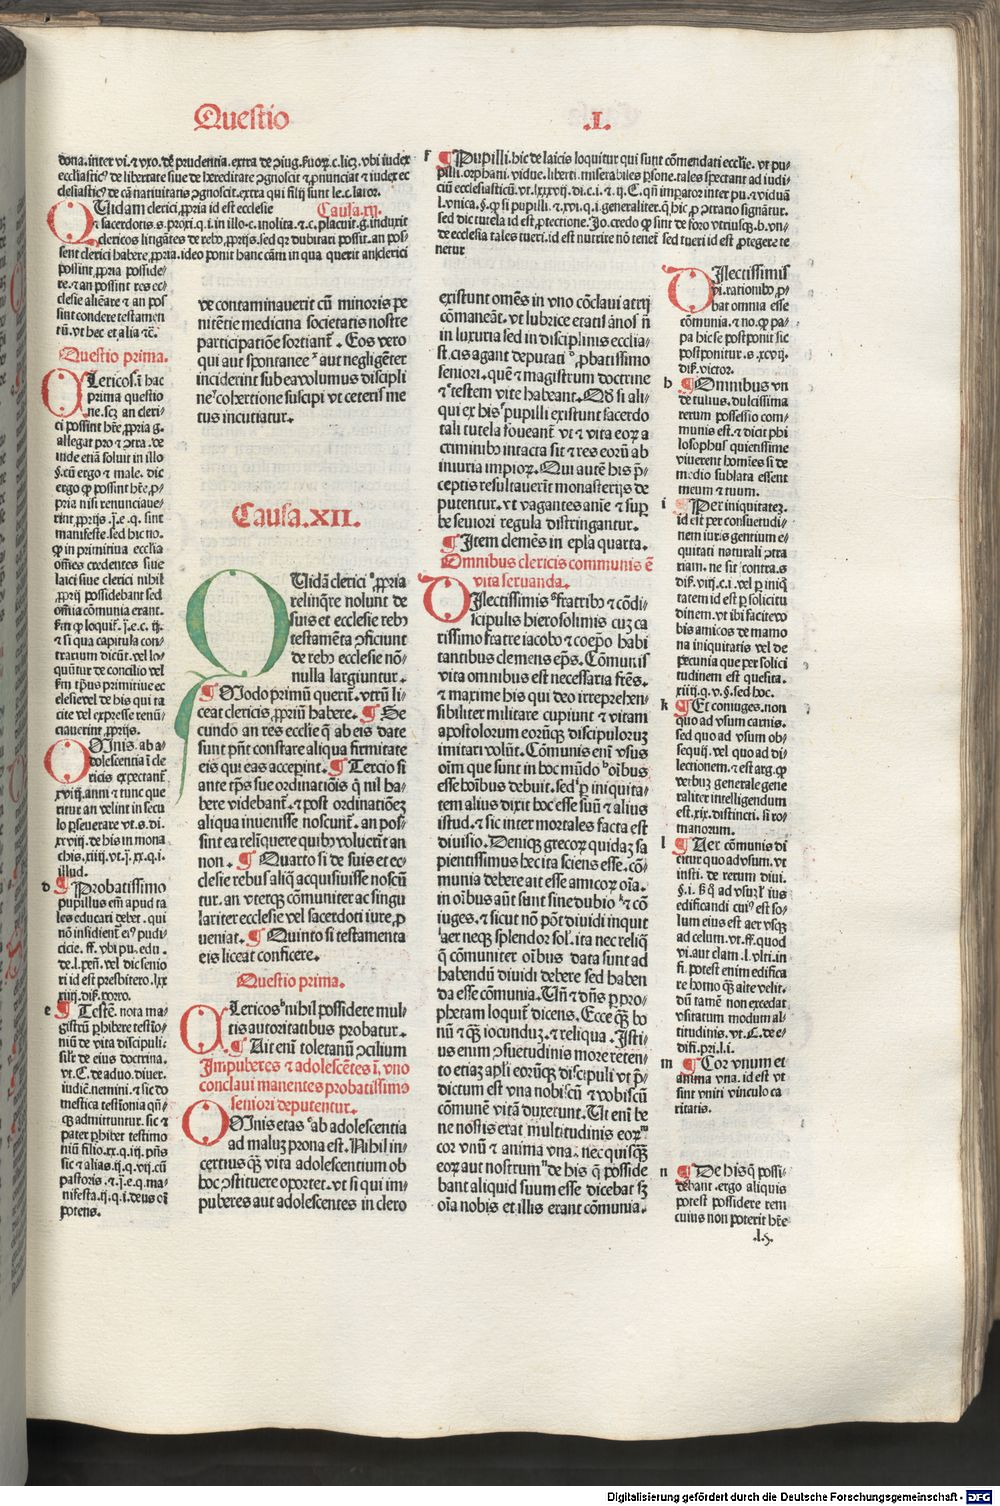 Questio
.I.
dona.inter vi.⁊ vxo.
Quidam clerici ꝓpria id est ecclesie Causa.xij.
possint ꝓpria posside⸗
re.⁊ an possint res ec⸗
clesie alieare ⁊ an pos
sint condere testamen
tū.vt hec et alia ⁊c̄.
Questio prima.
Clericos.i hac
prima questio
ne.scꝫ an cleri⸗
ci possint hr̄e ꝓpria g.
allegat pro ⁊ ꝯtra.de
inde etiā soluit in illo
§.cū ergo ⁊ male. dic
ergo ꝙ possint hr̄e.ꝓ⸗
pria nisi renunciaue⸗
rint ꝓprijs.j.e.q. sint
manifeste.sed hic no.
ꝙ in primitiua ecclia
om̄es credentes siue
laici siue clerici nihil
ꝓprij possidebant sed
om̄ia cōmunia erant.
⁊ si qua capitula con⸗
trarium dicūt.vel lo⸗
quūtur de concilio vel
clesie vel de his qui ta
cite vel expresse renū⸗
ciauerint ꝓprijs.
Omnis.ab a⸗
dolescentia i de
ricis expectant
xviij.anni ⁊ tunc que
ritur an velint in secu
lo ꝑseuerare vt.s.di.
xxviij.de his in mona
chis.xiiij.vt.j.xx.q.i.
illud.
d ¶ Probatissimo
pupillus em̄ apud ta
les educari debet.qui
non insidient eiꝰ pudi
cicie. ff.vbi pu.edu.
de.l.pen̄.vel dic senio
ri id est presbitero.lxx
xiiij.dis̄.porro.
e ¶ Testē. nota ma⸗
gistrū ꝑhibere testio⸗
niū de vita discipuli⸗
silr̄ de eius doctrina.
vt.C.de aduo.diuer.
iudic̄.nemini.⁊ sic do
mestica testīonia qn̄⸗
qꝫ admittuntur. sic ⁊
pater ꝑhibet testimo
niū filio.xx.q.iij.pn̄s
sic ⁊ alias.ij.q.vij.cū
pastoris.⁊ j.e.q.ma⸗
nifesta.ij.q.i.deus om̄
potens.
ve contaminauerit cū minoris pe
nitētie medicina societatis nostre
participatiōe sortiant̄ . Eos vero
qui aut spontanee aut negligēter
inciderint sub ea volumus discipli
ne cohertione suscipi vt ceteris me
tus incutiatur.
Causa.XII.
Quidā clerici ꝓpria
relinqre nolunt de
suis et ecclesie rebꝰ
testamēta ꝯficiunt
de rebꝰ ecclesie nō⸗
nulla largiuntur.
¶ Modo primū querit̄.vtrū li⸗
ceat clericis ꝓpriū habere. ¶ Se
cundo an res ecclie q̄ ab eis date
sunt pn̄t constare aliqua firmitate
eis qui eas acceperint. ¶ Tercio si
ante tp̄s sue ordinatiōis q̄ nil ha⸗
bere videbant̄.⁊ post ordinatiōeꝫ
aliqua inuenisse noscunt̄.an pos⸗
sint ea reliquere quibꝰ voluerit an
non. ¶ Quarto si de suis et ec⸗
clesie rebus aliq̄ acquisiuisse noscū
tur.an vterqꝫ cōmuniter ac singu
lariter ecclesie vel sacerdoti iure ꝓ
ueniat. ¶ Quinto si testamenta
eis liceat conficere.
Questio prima.
Clericos nihil possidere mul⸗
tis autoritatibus probatur.
¶ Ait enī toletanū ꝯcilium
Impuberes ⁊ adolescētes i vno
conclaui manentes probatissimo
seniori deputentur.
Omnis etas ab adolescentia
ad maluꝫ prona est. Nihil in⸗
certius qꝫ vita adolescentium ob
hoc ꝯstituere oportet.vt si qui im⸗
puberes aut adolescentes in clero
f ¶ Pupilli.hic de laicis loquitur qui sunt cōmendati ecclie. vt pu⸗
pilli.orphani.vidue.liberti.miserabiles ꝑsone.tales spectant ad iudi⸗
sed dic tutela id est ꝓtectione.
de ecclesia tales tueri.id est nutrire nō tenet sed tueri id est ꝓtegere te
netur
existunt om̄es in vno cōclaui atrij
cōmaneāt.vt lubrice etatis ānos n̄
in luxuria sed in disciplinis ecclia⸗
st.cis agant deputati ꝓbatissimo
seniori.quē ⁊ magistrum doctrine
⁊ testem vite habeant. Qd̄ si ali⸗
qui ex his pupilli existunt sacerdo
tali tutela foueant̄ vt ⁊ vita eoꝝ a
criminibꝰ intacta sit ⁊ res eorū ab
iniuria impioꝝ. Qui autē his p̄⸗
ceptis resultauerit monasterijs de
putentur.vt vagantes anie ⁊ suꝑ
be seniori regula distringantur.
¶ Item clemēs in epl̄a quarta.
Omnibus clericis communis ē
vita seruanda.
Dilectissimis fratribꝰ ⁊ cōdi⸗
scipulis hierosolimis cuꝫ ca
rissimo fratre iacobo ⁊ coepo habi
tantibus clemens ep̄s. Cōmunis
vita omnibus est necessaria fr̄es.
⁊ maxime his qui deo irreprehen⸗
sibiliter militare cupiunt ⁊ vitam
apostolorum eorūqꝫ discipuloruꝫ
imitari volūt. Cōmunis enī vsus
oīm que sunt in hoc mūdo oībus
esse hoībus debuit.sed ꝑ iniquita⸗
tem alius dixit hoc esse suū ⁊ alius
istud.⁊ sic inter mortales facta est
diuisio. Deniqꝫ grecoꝝ quidaꝫ sa
pientissimus hec ita sciens esse.cō⸗
munia debere ait esse amicoꝝ oīa.
in oībus aūt sunt sine dubio ⁊ cō
iuges.⁊ sicut nō pōt diuidi inquit
aer neqꝫ splendor sol'.ita nec reliq̄
q̄ cōmuniter oībus data sunt ad
habendū diuidi debere sed haben
da esse cōmunia. Un̄ ⁊ dn̄s ꝑ pro⸗
phetam loquit̄ dicens. Ecce qꝫ bo
nū ⁊ qꝫ iocunduꝫ.⁊ reliqua. Isti⸗
us enim ꝯsuetudinis more reten⸗
to etiaꝫ apl̄i eorūqꝫ discipuli vt p̄⸗
dictum est vna nobiscū ⁊ vobiscū
cōmunē vitā duxerunt. Ut enī be
ne nostis erat multitudinis eoꝝ
cor vnū ⁊ anima vna. nec quisqꝫ
eoꝝ aut nostrum de his q̄ posside
bant aliquid suum esse dicebat sꝫ
oīa nobis et illis erant cōmunia.
Dilectissimis
vi.rationibꝰ ꝓ⸗
bat omnia esse
cōmunia.⁊ no.ꝙ pa⸗
pa hic se postponit sic
postponitur.s.xcvij.
dis̄.victor.
h ¶ Omnibus vn
de tulius.dulcissima
rerum possessio com⸗
munis est.⁊ dicit phi
losophus quietissime
viuerent homīes si de
medio sublata essent
meum ⁊ tuum.
i ¶ Per iniquitatez.
id est per consuetudi⸗
nem iuris gentium e⸗
quitati naturali ꝯtra
riam.ne sit contra.s
dis̄.viij.c.i.vel ꝑ iniq̄
tatem id est ꝑ solicitu
dinem.vt ibi facite vo
bis amicos de mamo
na iniquitatis vel de
pecunia que per solici
tudinem est quesita.
xiiij.q.v.§.sed hoc.
k ¶ Et coniuges.non
quo ad vsum carnis.
sed quo ad vsum ob⸗
sequij.vel quo ad di⸗
lectionem.⁊ est arg.ꝙ
verbuꝫ generale gene
raliter intelligendum
est.xix.distincti.si ro⸗
manorum.
l ¶ Aer cōmunis di
citur quo ad vsum.vt
insti. de rerum diui.
edificandi cuiꝰ est so⸗
lum eius est aer vsqꝫ
ad celum.vt.ff.quod
vi.aut clam.l.vlti.in
fi.potest enim edifica
re homo qꝫ alte velit.
dū tamē non excedat
vsitatum modum al⸗
titudinis.vt.C.de e⸗
difi.pri.l.i.
m ¶ Cor vnum et
anima vna.id est vt
sint vniti vinculo ca
ritatis.
n ¶ De his q̄ possi⸗
debant.ergo aliquis
potest possidere rem
cuius non poterit hr̄e
.l.5.
Digitalisierung gefördert durch die Deutsche Forschungsgemeinschaft - DFG